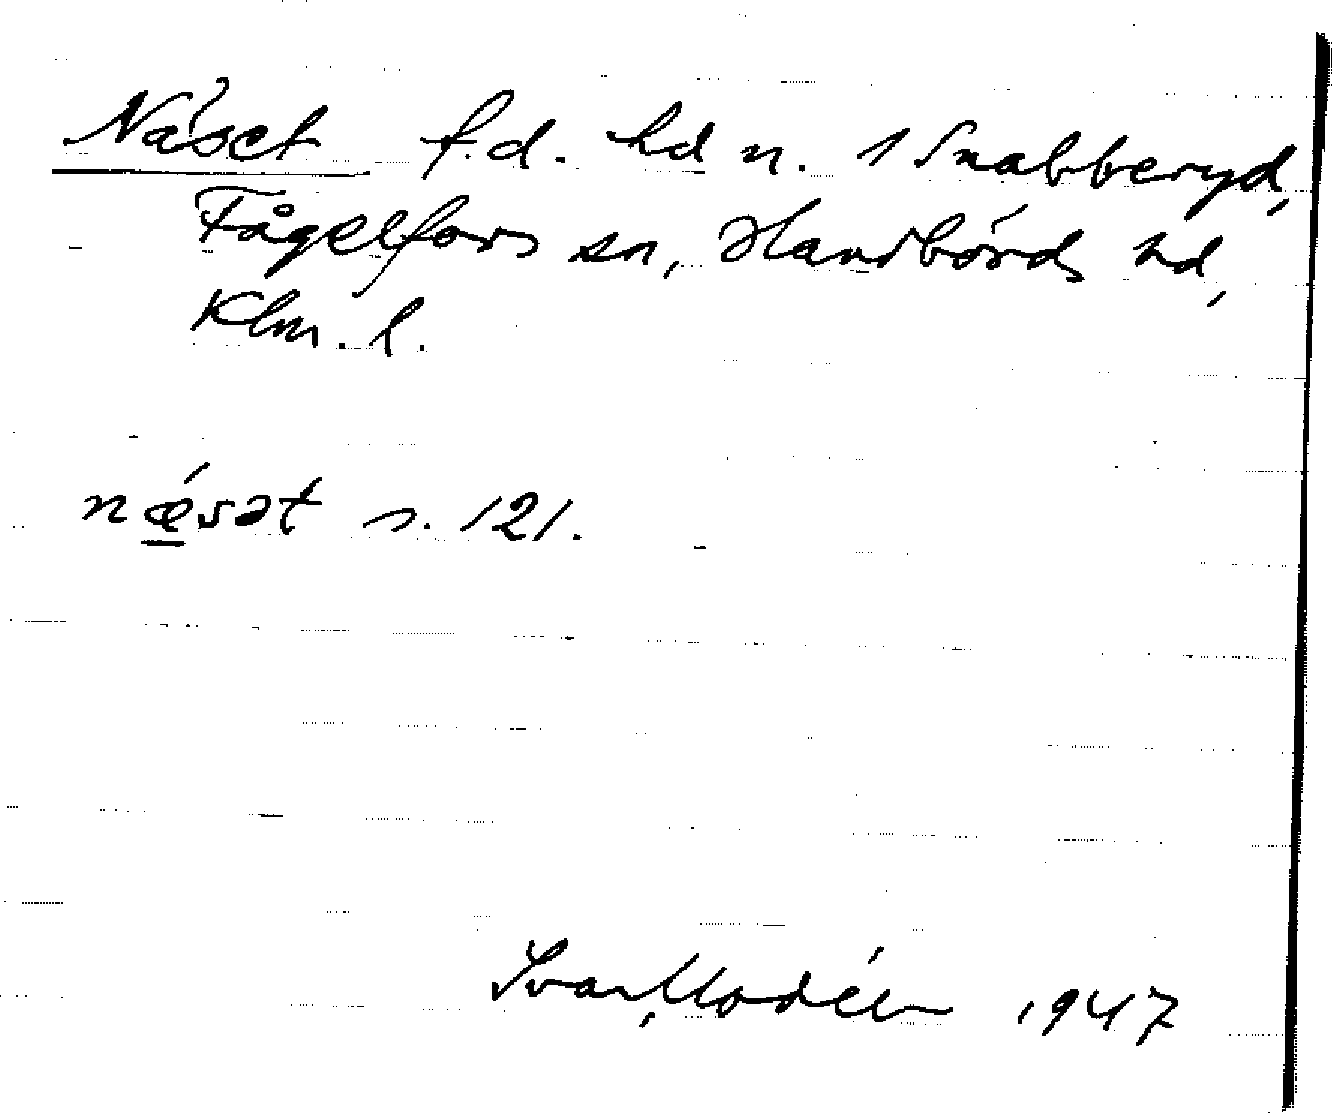 Näset f.d. hd n. 1 Snabberyd,
Fågelfors sn, Handbörds hd,
Klm. l.
nǽsət s. 121.
Ivar Modéer 1947